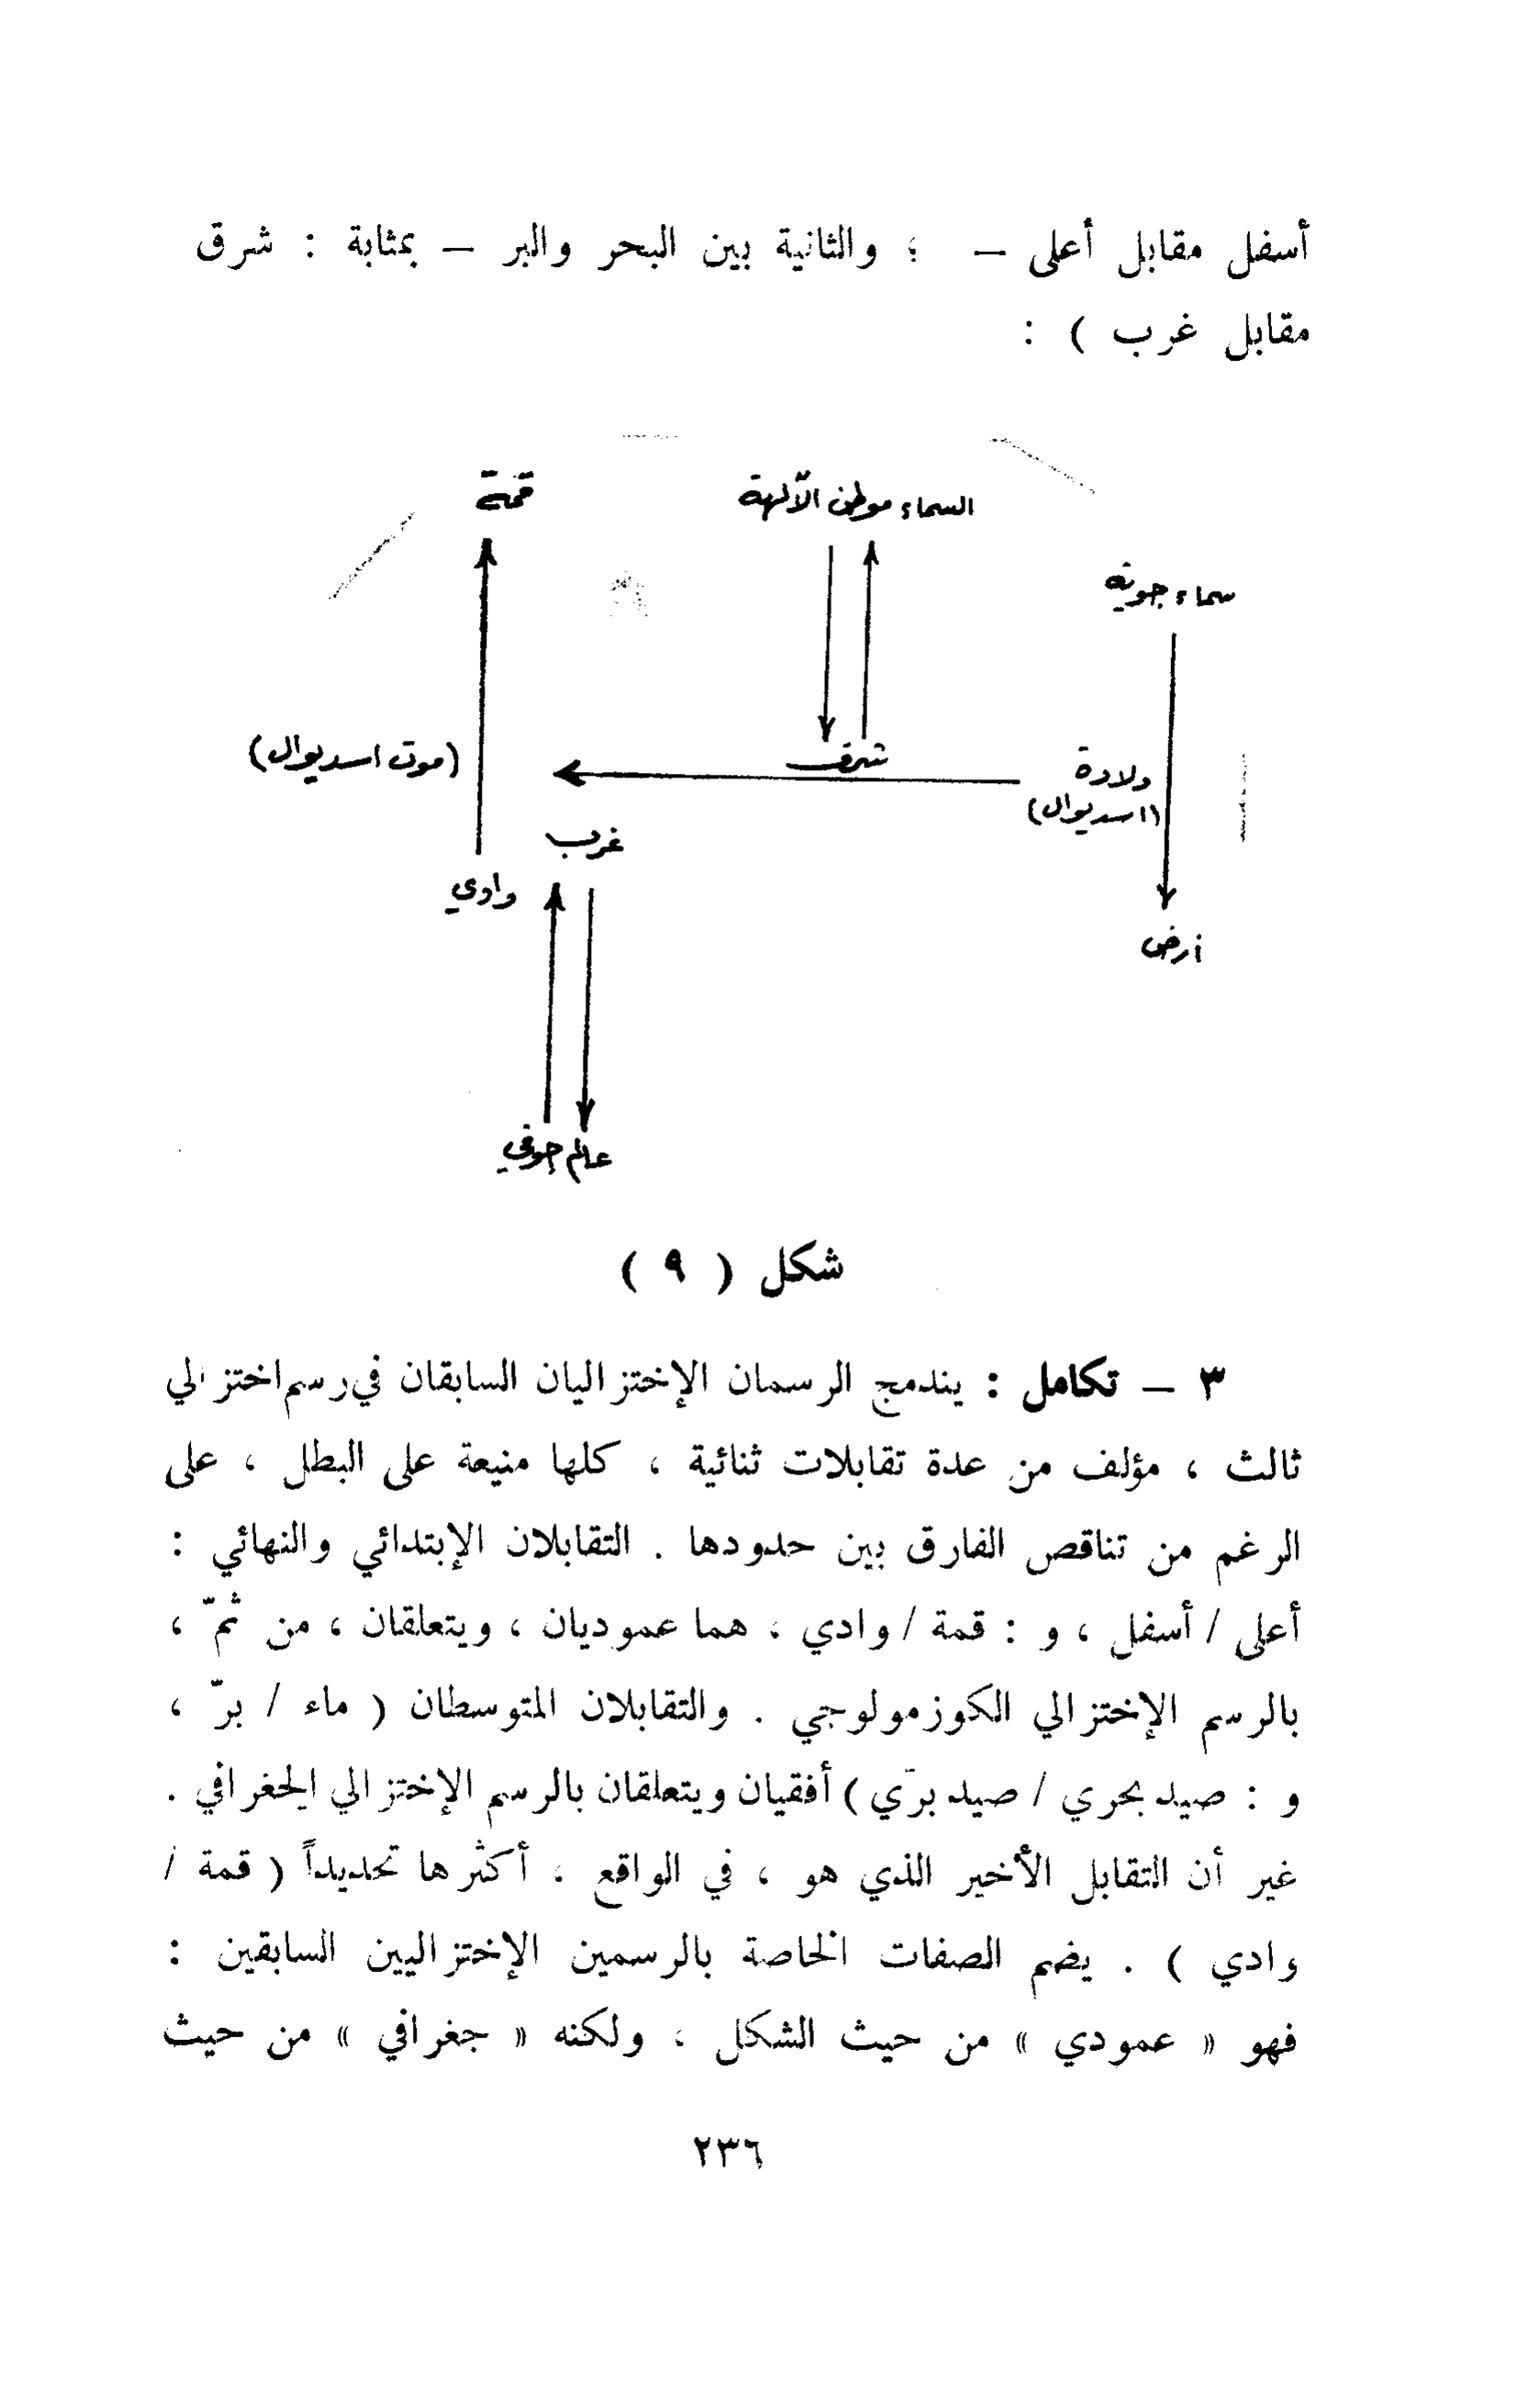 أسفل مقابل أعلى — ؛ والثانية بين البحر والبر — بمثابة : شرق
مقابل غرب ) :
قمة
السماء موطن الآلهة
سماء جوية
(موت اسديوال)
شرق
ولادة
(اسديوال)
غرب
وادي
أرض
عالم جوفي
شكل ( ٩ )
٣ — تكامل : يندمج الرسمان الإختزاليان السابقان في رسم اختزالي
ثالث ، مؤلف من عدة تقابلات ثنائية ، كلها منيعة على البطل ، على
الرغم من تناقص الفارق بين حدودها . التقابلان الإبتدائي والنهائي :
أعلى / أسفل ، و : قمة / وادي ، هما عموديان ، ويتعلقان ، من ثمّ ،
بالرسم الإختزالي الكوزمولوجي . والتقابلان المتوسطان ( ماء / برّ ،
و : صيد بحري / صيد برّي ) أفقيان ويتعلقان بالرسم الإختزالي الجغرافي .
غير أن التقابل الأخير الذي هو ، في الواقع ، أكثرها تحديداً ( قمة /
وادي ) . يضم الصفات الخاصة بالرسمين الإختزاليين السابقين :
فهو « عمودي » من حيث الشكل ، ولكنه « جغرافي » من حيث
٢٣٦